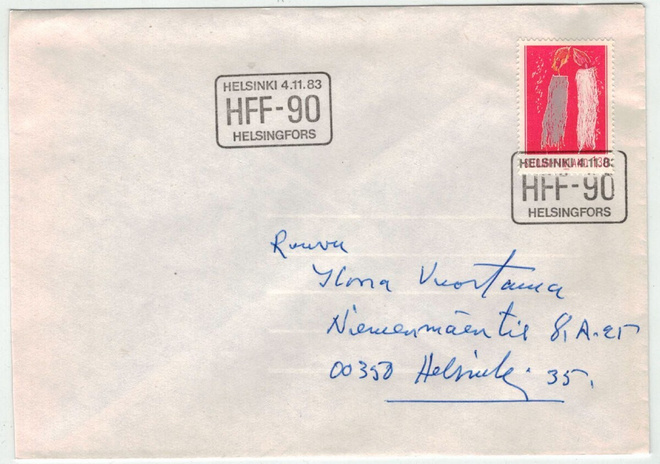 HELSINKI 4.11.83
HFF-90
HELSINGFORS
HELSINKI 4.11.83
HFF-90
HELSINGFORS
Rouva
Ilona Vuortama
Niemenmäentie 8, A.
00350 Helsinki 35.